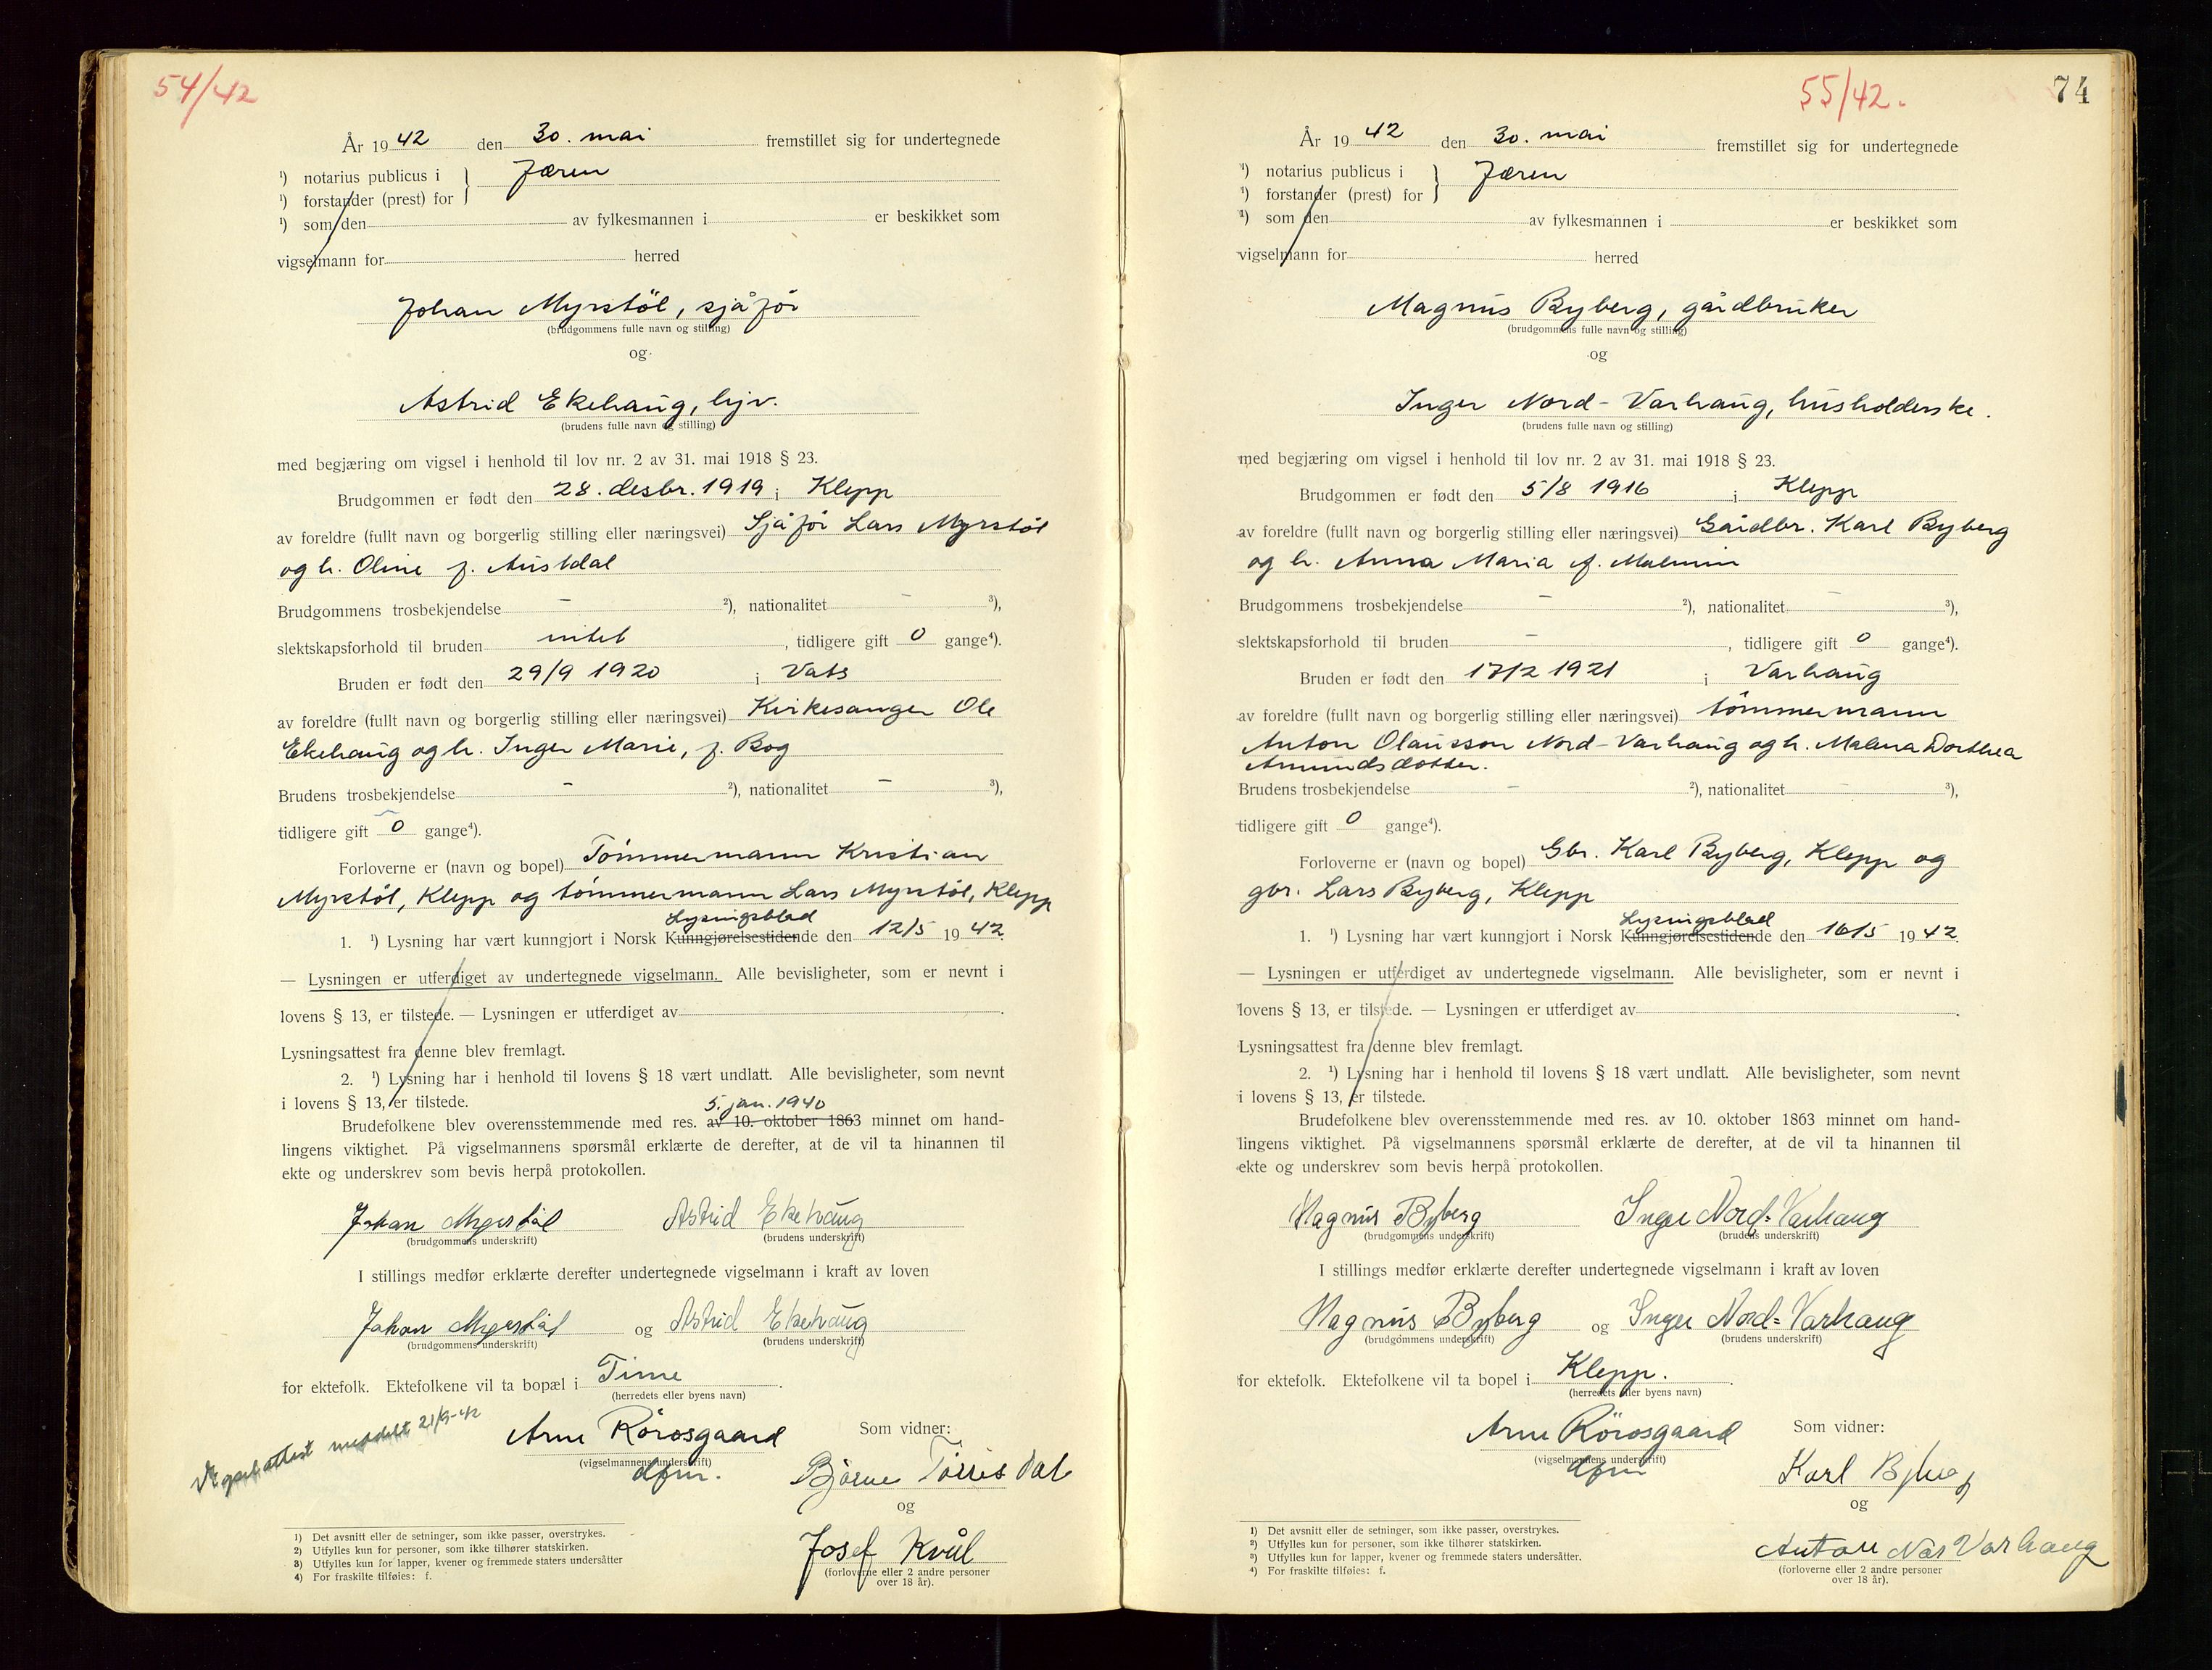 54/42
År 1942 den 30. mai fremstillet sig for undertegnede
¹) notarius publicus i } Jæren
¹) forstander (prest) for
¹) som den av fylkesmannen i er beskikket som
vigselmann for herred
Johan Myrstøl, sjåfør
(brudgommens fulle navn og stilling)
og
Astrid Ekehaug, hjv.
(brudens fulle navn og stilling)
med begjæring om vigsel i henhold til lov nr. 2 av 31. mai 1918 § 23.
Brudgommen er født den 28. desbr. 1919 i Klepp
av foreldre (fullt navn og borgerlig stilling eller næringsvei) Sjåfør Lars Myrstøl
og h. Oline f. Austdal
Brudgommens trosbekjendelse – ²), nationalitet – ³),
slektskapsforhold til bruden intet, tidligere gift 0 gange⁴).
Bruden er født den 29/9 1920 i Vats
av foreldre (fullt navn og borgerlig stilling eller næringsvei) Kirkesanger Ole
Ekehaug og h. Inger Marie, f. Bog
Brudens trosbekjendelse – ²), nationalitet – ³),
tidligere gift 0 gange⁴).
Forloverne er (navn og bopel) Tømmermann Kristian
Myrstøl, Klepp og tømmermann Lars Myrstøl, Klepp
Lysningsblad
1. ¹) Lysning har vært kunngjort i Norsk Kunngjørelsestidende den 12/5 1942.
— Lysningen er utferdiget av undertegnede vigselmann. Alle bevisligheter, som er nevnt i
lovens § 13, er tilstede. — Lysningen er utferdiget av .
Lysningsattest fra denne blev fremlagt.
2. ¹) Lysning har i henhold til lovens § 18 vært undlatt. Alle bevisligheter, som nevnt
i lovens § 13, er tilstede.
5. jan. 1940
Brudefolkene blev overensstemmende med res. av 10. oktober 1863 minnet om hand-
lingens viktighet. På vigselmannens spørsmål erklærte de derefter, at de vil ta hinannen til
ekte og underskrev som bevis herpå protokollen.
Johan Myrstøl Astrid Ekehaug
(brudgommens underskrift) (brudens underskrift)
I stillings medfør erklærte derefter undertegnede vigselmann i kraft av loven
Johan Myrstøl og Astrid Ekehaug
(brudgommens underskrift) (brudens underskrift)
for ektefolk. Ektefolkene vil ta bopæl i Time .
(herredets eller byens navn)
Vigselsattest meddelt 21/9-42
Arne Rörosgaard Som vidner:
(vigselmannens underskrift)
dfm. Bjarne Tørres dal
og
Josef Kvål
(forloverne eller 2 andre personer
over 18 år).
1) Det avsnitt eller de setninger, som ikke passer, overstrykes.
2) Utfylles kun for personer, som ikke tilhører statskirken.
3) Utfylles kun for lapper, kvener og fremmede staters undersåtter
4) For fraskilte tilføies: f.
55/42. 74
År 1942 den 30. mai fremstillet sig for undertegnede
¹) notarius publicus i } Jæren
¹) forstander (prest) for
¹) som den av fylkesmannen i er beskikket som
vigselmann for herred
Magnus Byberg, gårdbruker
(brudgommens fulle navn og stilling)
og
Inger Nord-Varhaug, husholderske.
(brudens fulle navn og stilling)
med begjæring om vigsel i henhold til lov nr. 2 av 31. mai 1918 § 23.
Brudgommen er født den 5/8 1916 i Klepp
av foreldre (fullt navn og borgerlig stilling eller næringsvei) Gårdbr. Karl Byberg
og h. Anna Maria f. Malmin
Brudgommens trosbekjendelse – ²), nationalitet – ³),
slektskapsforhold til bruden –, tidligere gift 0 gange⁴).
Bruden er født den 17/2 1921 i Varhaug
av foreldre (fullt navn og borgerlig stilling eller næringsvei) tømmermann
Anton Olausson Nord-Varhaug og h. Malena Dorthea
Amundsdotter.
Brudens trosbekjendelse – ²), nationalitet – ³),
tidligere gift 0 gange⁴).
Forloverne er (navn og bopel) Gbr. Karl Byberg, Klepp og
gbr. Lars Byberg, Klepp
Lysningsblad
1. ¹) Lysning har vært kunngjort i Norsk Kunngjørelsestidende den 16/5 1942.
— Lysningen er utferdiget av undertegnede vigselmann. Alle bevisligheter, som er nevnt i
lovens § 13, er tilstede. — Lysningen er utferdiget av .
Lysningsattest fra denne blev fremlagt.
2. ¹) Lysning har i henhold til lovens § 18 vært undlatt. Alle bevisligheter, som nevnt
i lovens § 13, er tilstede.
Brudefolkene blev overensstemmende med res. av 10. oktober 1863 minnet om hand-
lingens viktighet. På vigselmannens spørsmål erklærte de derefter, at de vil ta hinannen til
ekte og underskrev som bevis herpå protokollen.
Magnus Byberg Inger Nord=Varhaug
(brudgommens underskrift) (brudens underskrift)
I stillings medfør erklærte derefter undertegnede vigselmann i kraft av loven
Magnus Byberg og Inger Nord=Varhaug
(brudgommens underskrift) (brudens underskrift)
for ektefolk. Ektefolkene vil ta bopel i Klepp. .
(herredets eller byens navn)
Arne Rörosgaard Som vidner:
(vigselmannens underskrift)
dfm Karl Byberg
og
Anton Nor Varhaug
(forloverne eller 2 andre personer
over 18 år).
1) Det avsnitt eller de setninger, som ikke passer, overstrykes.
2) Utfylles kun for personer, som ikke tilhører statskirken.
3) Utfylles kun for lapper, kvener og fremmede staters undersåtter.
4) For fraskilte tilføies: f.